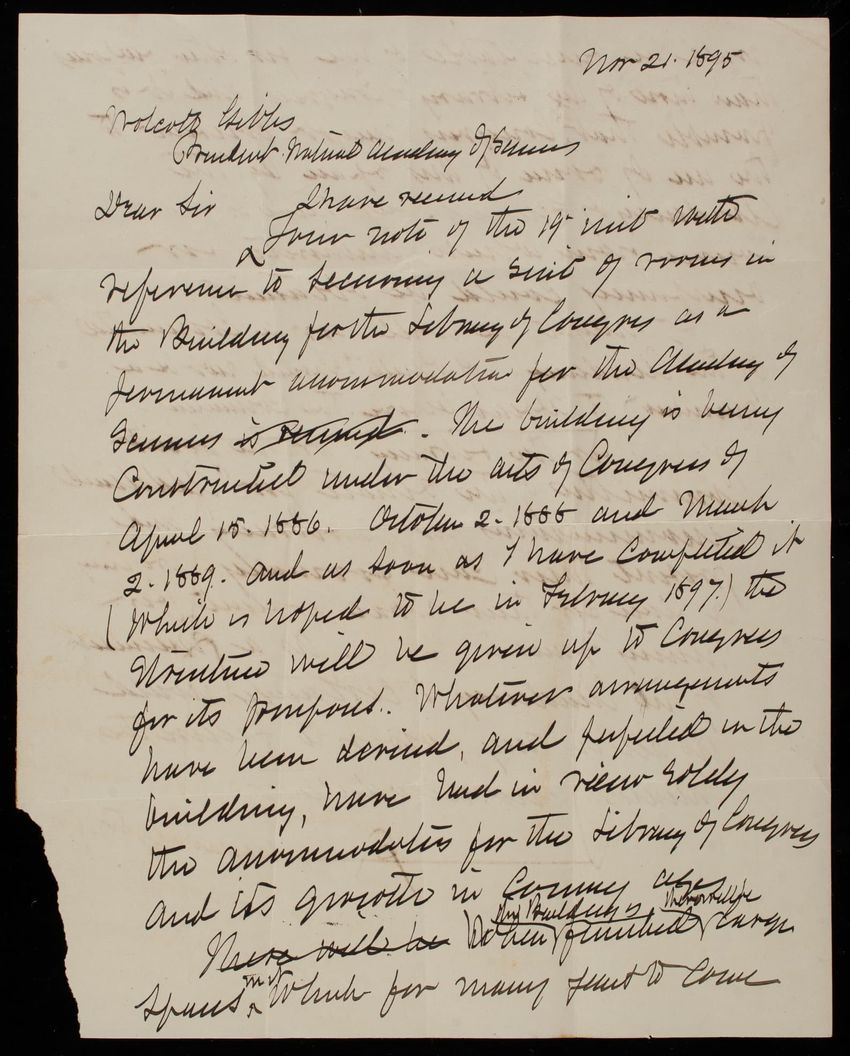 Nov 21. 1895
Wolcott Gibbs
President National Academy of Sciences
Dear Sir I have received
Your note of the 19" inst with
reference to securing a suit of rooms in
the Building for the Library of Congress as a
permanent accommodation for the Academy of
Sciences is received. The building is being
Constructed under the acts of Congress of
April 15. 1886. October 2. 1888 and March
2. 1889. and as soon as I have completed it
(Which is hoped to be in February 1897.) the
Structure will be given up to Congress
for its purposes. Whatever arrangements
have been devised, and perfected in the
building, have had in view solely
the accommodation for the Library of Congress
and its growth in coming ages
the Building is there will be
There will be When finished large
Spaces in it Which for many years to come